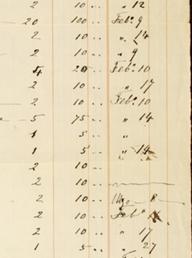 2 10 .. " 12
20 100 .. Feb. 9
2 10 .. " 14
2 10 .. " 9
4 20 .. Feb. 10
2 10 .. " 17
2 10 .. Feb. 10
5 75 .. " 14
1 5 .. "
1 5 .. " 14
2 10 ..
2 10 ..
2 10 .. 8
2 10 .. Feb.
2 10 .. " 17
1 5 .. " 27